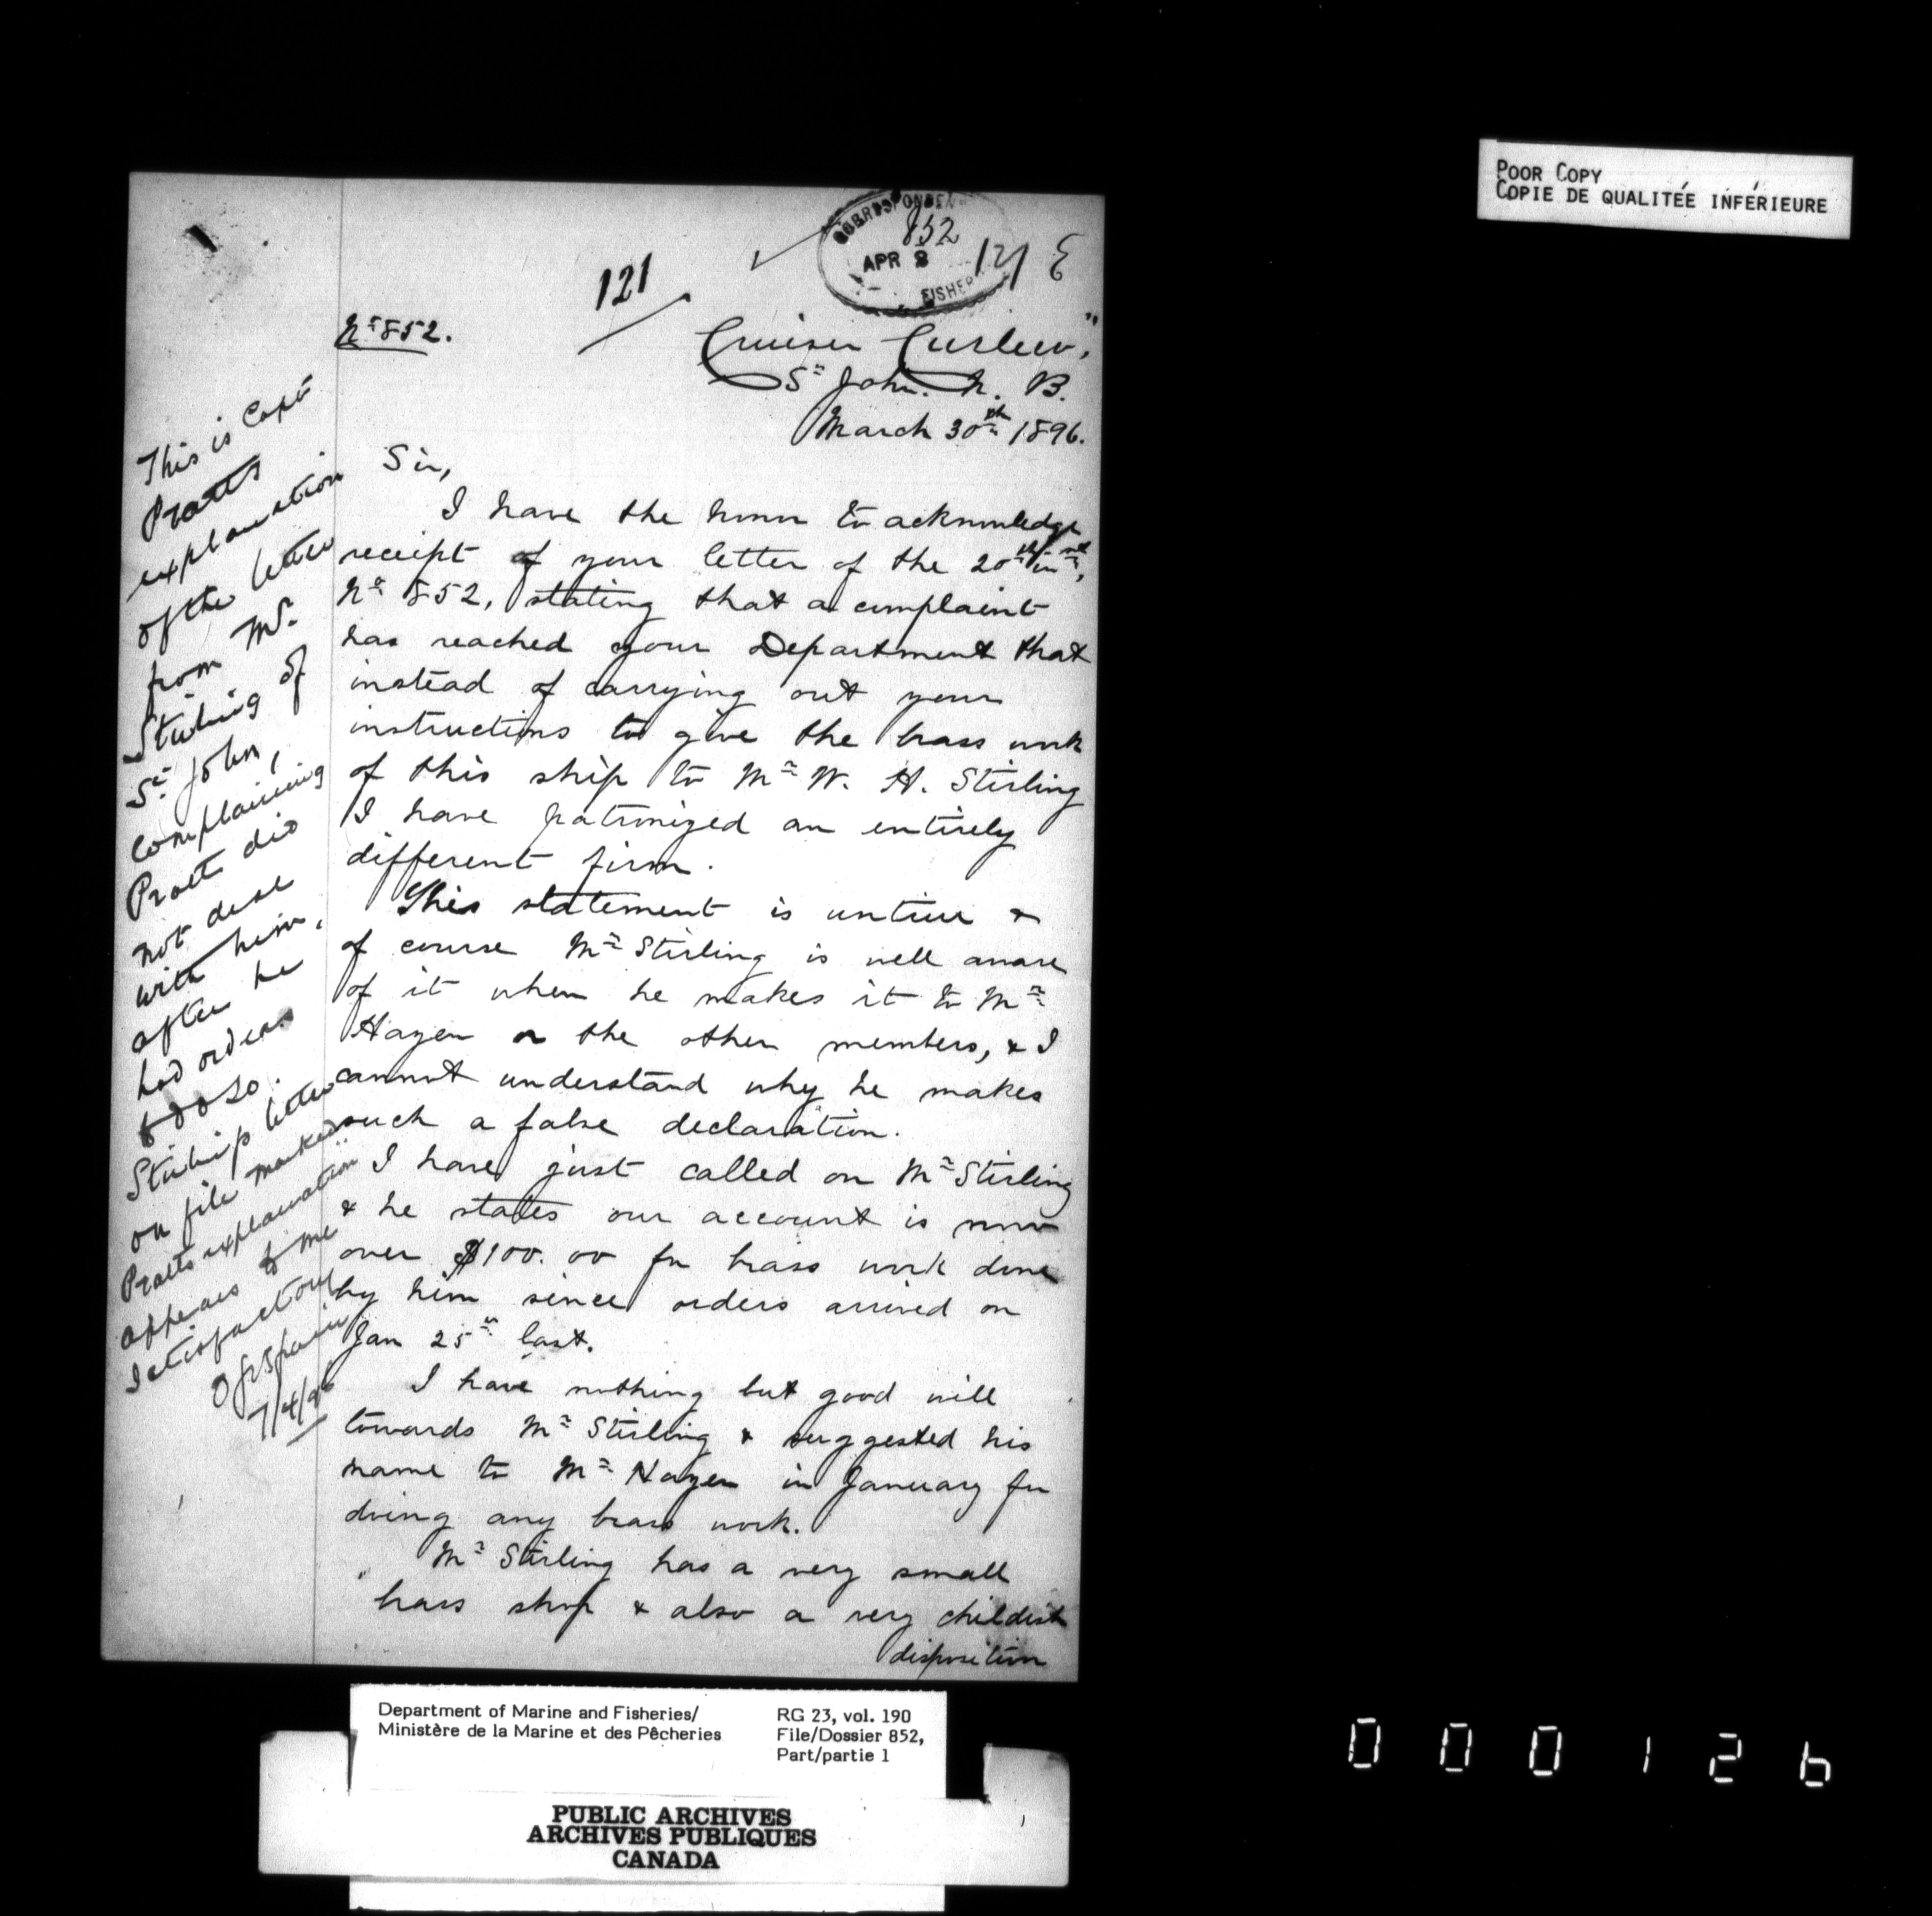 POOR COPY
COPIE DE QUALITÉE INFÉRIEURE
CORRESPONDEN
852
APR 8
FISHER
121 E
121
Nº 852.
Cruiser Curlew,"
St John. N. B.
March 30th 1896.
Sir,
I have the honor to acknowledge
receipt of your letter of the 20th inst,
Nº 852, stating that a complaint
has reached your Department that
instead of carrying out your
instructions to give the brass work
of this ship to Mr W. H. Stirling
I have patronized an entirely
different firm.
This statement is untrue &
of course Mr Stirling is well aware
of it when he makes it to Mr
Hazen or the other members, & I
cannot understand why he makes
such a false declaration.
I have just called on Mr Stirling
& he states our account is now
over $100.00 for brass work done
by him since orders arrived on
Jan 25th last.
I have nothing but good will
towards Mr Stirling & suggested his
name to Mr Hazen in January for
doing any brass work.
Mr Stirling has a very small
brass shop & also a very childish
disposition
This is Capt
Pratts
explanation
of the letter
from Mr.
Stirling of
St. John,
complaining
Pratt did
not deal
with him,
after he
had orders
to do so.
Stirlings letter
on file marked
Pratts explanation
appears to me
satisfactory
7/4/96
Department of Marine and Fisheries/
Ministère de la Marine et des Pêcheries
RG 23, vol. 190
File/Dossier 852,
Part/partie 1
PUBLIC ARCHIVES
ARCHIVES PUBLIQUES
CANADA
000126